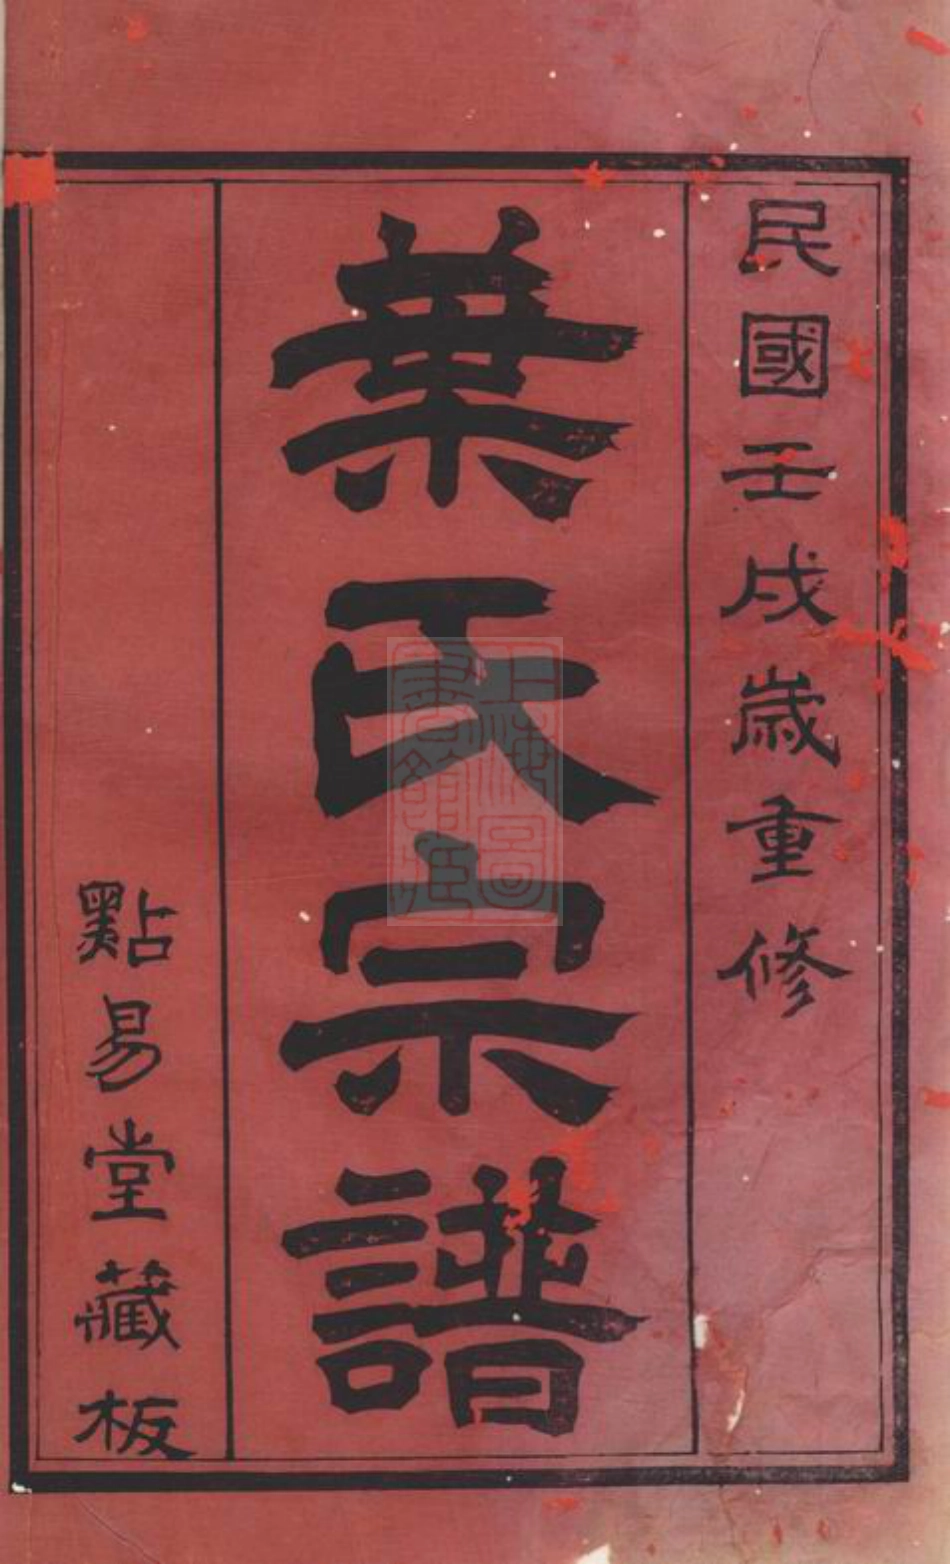 民國壬戌歲重修
葉氏宗譜
點易堂藏板
上海圖書館藏